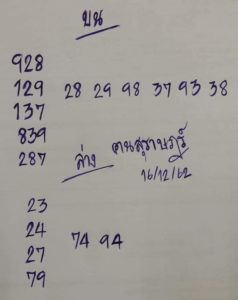 บน
928
129 28 29 98 37 93 38
137
839
287 ล่าง คนสุราษฎร์
16/12/62
23
24
27 74 94
79